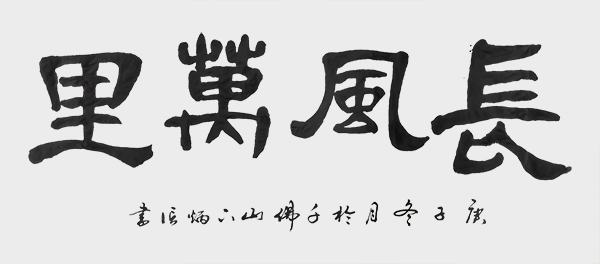 長風萬里
庚子冬月於千佛山下炳書